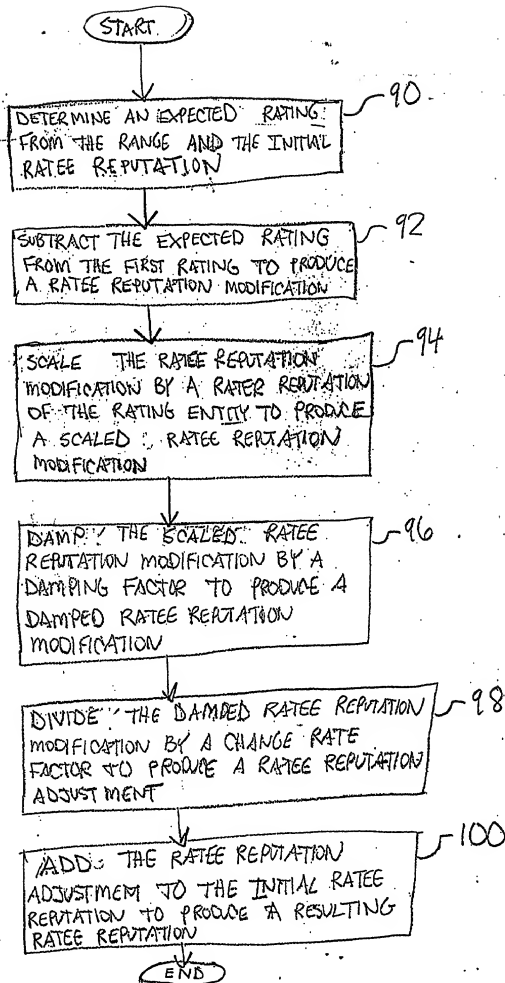 START
90
DETERMINE AN EXPECTED RATING
FROM THE RANGE AND THE INITIAL
RATEE REPUTATION
92
SUBTRACT THE EXPECTED RATING
FROM THE FIRST RATING TO PRODUCE
A RATEE REPUTATION MODIFICATION
94
SCALE THE RATEE REPUTATION
MODIFICATION BY A RATER REPUTATION
OF THE RATING ENTITY TO PRODUCE
A SCALED RATEE REPUTATION
MODIFICATION
96
DAMP THE SCALED RATEE
REPUTATION MODIFICATION BY A
DAMPING FACTOR TO PRODUCE A
DAMPED RATEE REPUTATION
MODIFICATION
98
DIVIDE THE DAMPED RATEE REPUTATION
MODIFICATION BY A CHANGE RATE
FACTOR TO PRODUCE A RATEE REPUTATION
ADJUSTMENT
100
ADD THE RATEE REPUTATION
ADJUSTMENT TO THE INITIAL RATEE
REPUTATION TO PRODUCE A RESULTING
RATEE REPUTATION
END